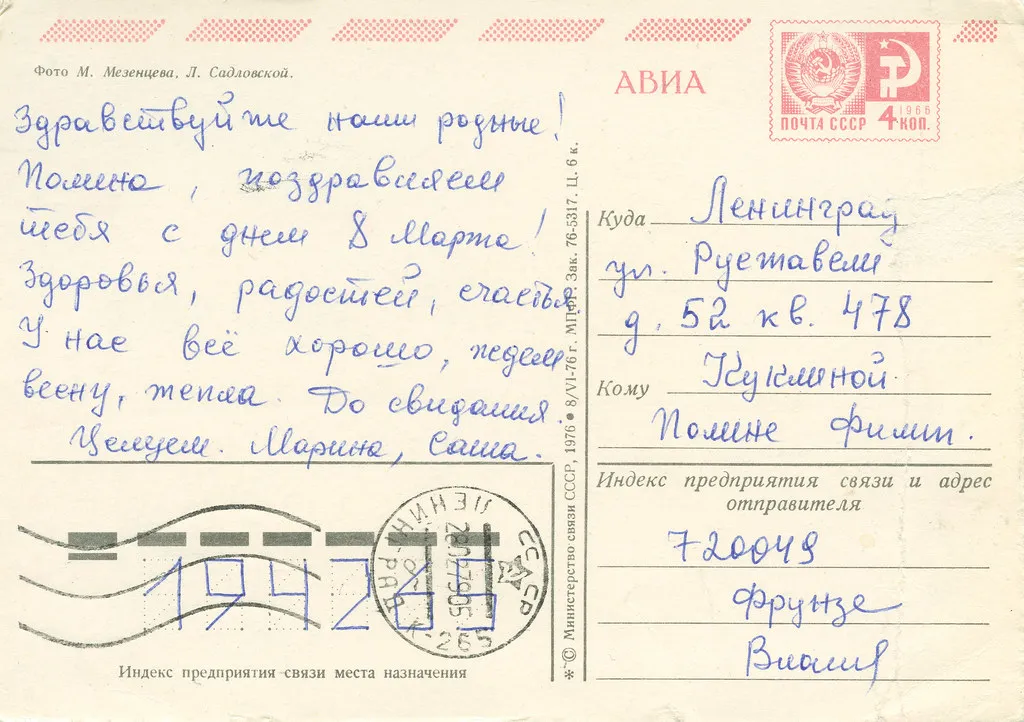 Фото М. Мезенцева, Л. Садловской.
АВИА
1966
ПОЧТА СССР 4 КОП.
Здравствуйте наши родные!
Полина, поздравляем
тебя с днем 8 Марта!
Здоровья, радостей, счастья.
У нас всё хорошо, ждем
весну, тепла. До свидания.
Целуем. Марина, Саша.
Куда Ленинград
ул. Руставели
д. 52 кв. 478
Кому Куклиной
Полине Филип.
Индекс предприятия связи и адрес
отправителя
720049
Фрунзе
194265
СССР
ЛЕНИНГРАД
К-265
Индекс предприятия связи места назначения
*© Министерство связи СССР, 1976 • 8/VI-76 г. МПФГ. Зак. 76-5317. Ц. 6 к.